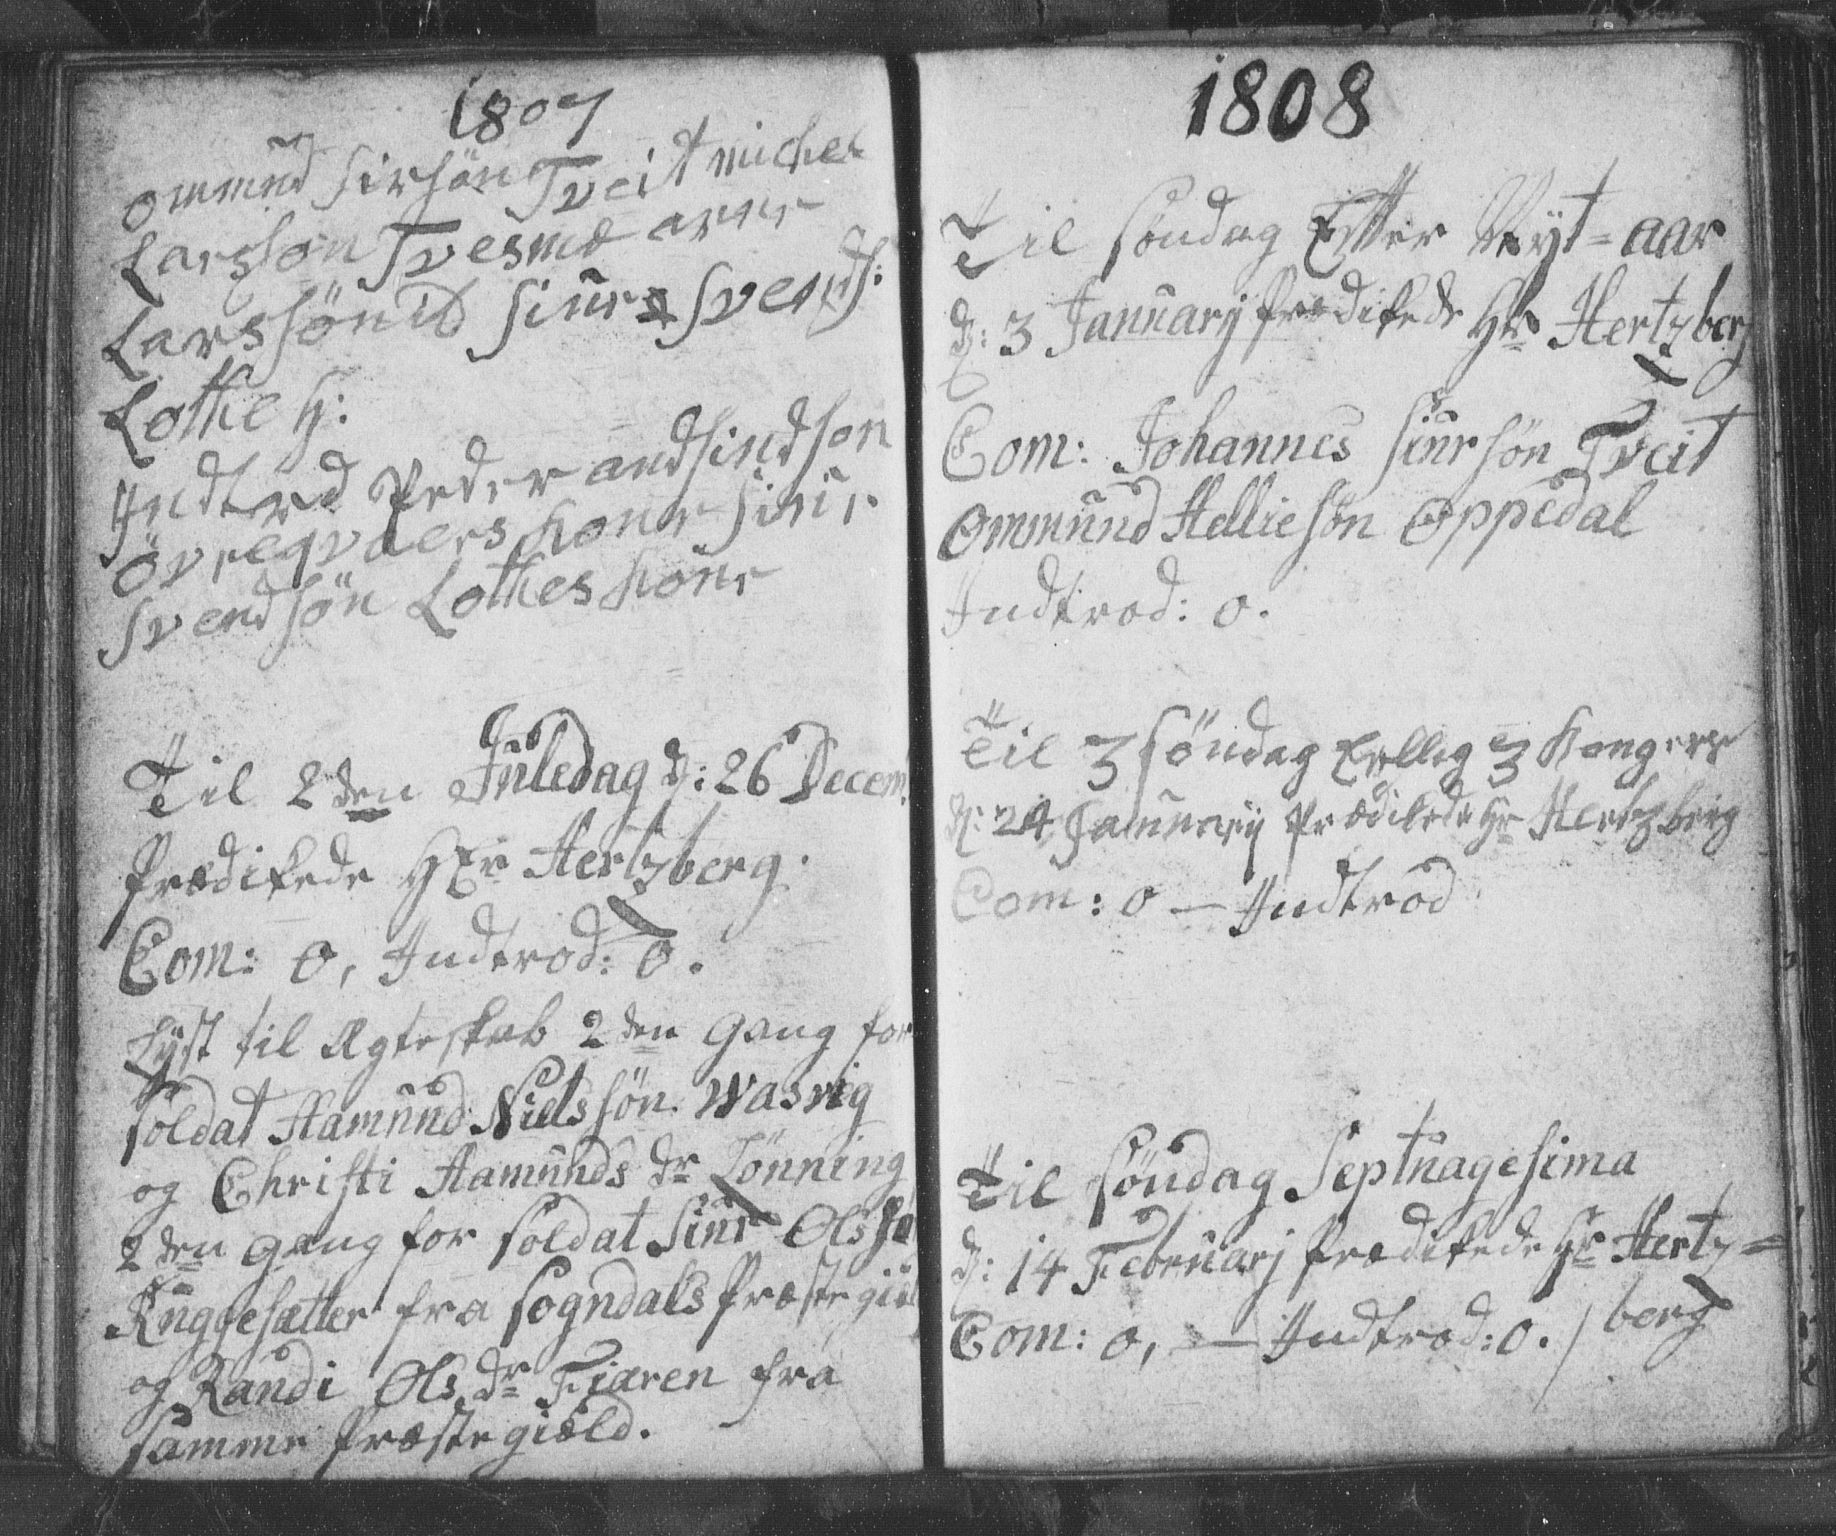 1807
ommund Sirsøn Tveit michel
Larsson Tvesme arne
Larssøn ib Siur Svends:
Lothe H:
Indled Peder andsindsøn
øvreqvaers kone Siur
Svendsøn Lothes kone
Til 2den Juledag d: 26 Decem:
Prædikede Hr Hertzberg.
Com: 0, Indtrod: 0.
Lyst til Ægteskab 2den Gang for
Soldat Aamund Nielssøn Wasvig
og Christi Aamunds dr Lønning
2den Gang for Soldat Siur Olssø
Ruggesætter fra Sogndals Præstegiæl
og Randi Ols dr Fiæren fra
samme Præstegiæld.
1808
Til Søndag Efter Nyt=aar
d: 3 Januarij Prædikede Hr Hertzberg
Com: Johannes Siursøn Tveit
Ommund Helliesøn Oppedal
Indtrod: 0.
Til 3 Søndag Hellig 3 Konger
d: 24 Januarij Prædikede Hr Hertzberg
Com: 0 — Indtrod
Til Søndag Septuagesima
d: 14 Februarj Prædikede Hr Hertz=
Com: 0, — Indtrod: 0. / berg